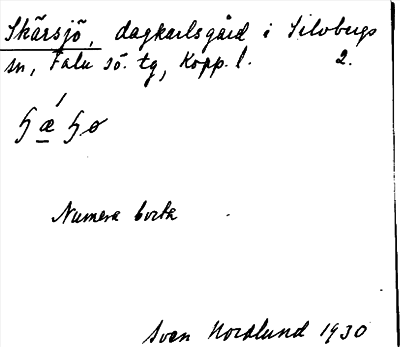 Skärsjö, dagkarlsgård i Silvbergs
sn, Falu sö. tg, Kopp. l. 2.
Numera borta
Sven Nordlund 1930